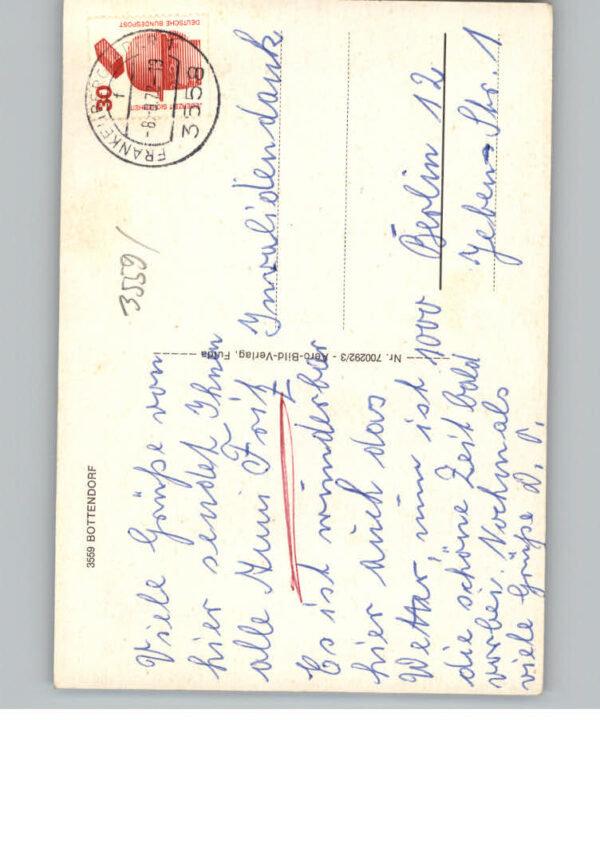 3559 BOTTENDORF
Viele Grüße von
hier sendet Ihnen
alle Anni Fritz
Es ist wunderbar
hier auch das
Wetter, nun ist
die schöne Zeit bald
vorbei. Nochmals
viele Grüße D. O.
Nr. 700292/3 - Aero-Bild-Verlag, Fulda
3559/
DEUTSCHE BUNDESPOST
30
JEDERZEIT SICHERHEIT
FRANKENBERG
3558
Invalidendank
1000 Berlin 12
Jebens-Str. 1